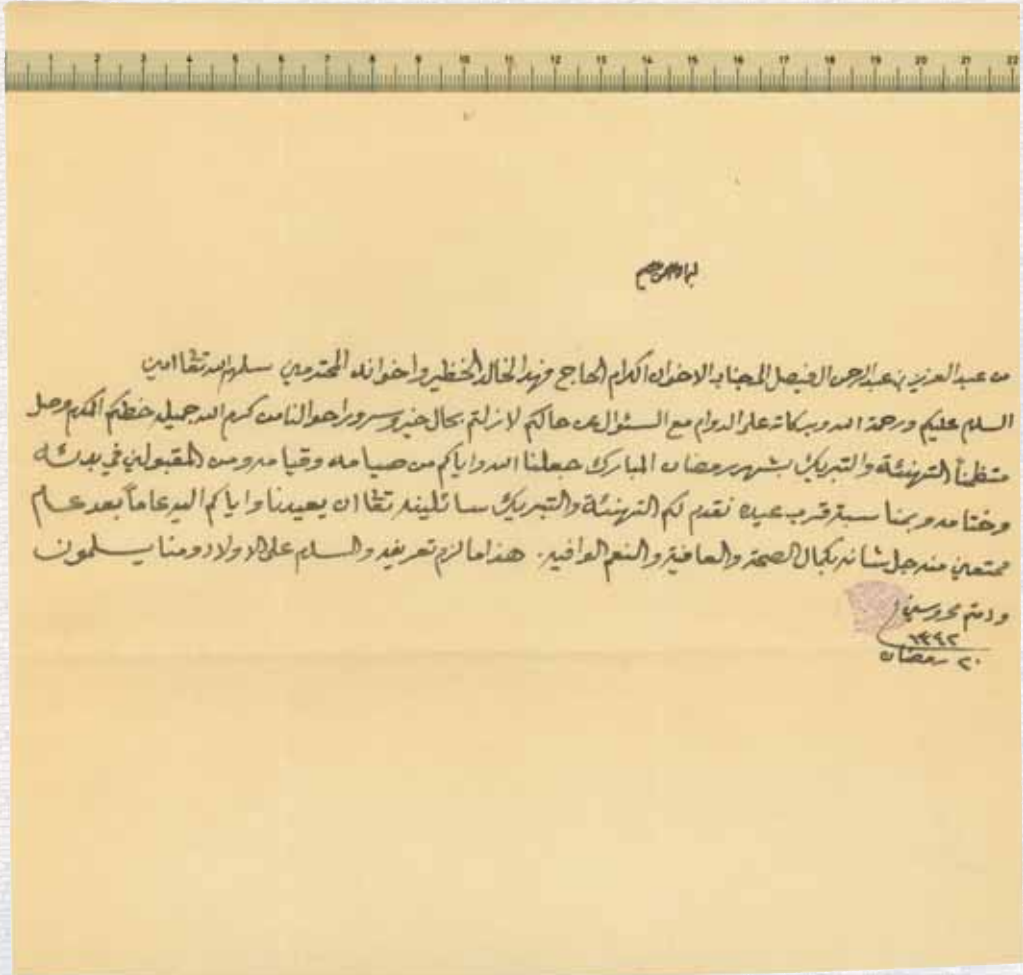 1 2 3 4 5 6 7 8 9 10 11 12 13 14 15 16 17 18 19 20 21 22
من عبد العزيز بن عبد الرحمن الفيصل الى جناب الاخوان الكرام الحاج فهد الخالد الخظير واخوانه المحترمين سلمهم الله تعا امين
السلام عليكم ورحمة الله وبركاته على الدوام مع السئوال عن حالكم لا زلتم بحال خير وسرور احوالنا من كرم الله جميله خطكم المكرم وصل
متظمناً التهنئة والتبريك بشهر رمضان المبارك جعلنا الله واياكم من صيامه وقيامه ومن المقبولين في بدئه
وختامه وبمناسبة قرب عيده نقدم لكم التهنئة والتبريك سائلينه تعا ان يعيدنا واياكم اليه عاماً بعد عام
ممتعين منه جل شانه بكمال الصحة والعافية والنعم الوافيه. هذا ما لزم تعريفه والسلام على الاولاد ومنا يسلمون
ودمتم محروسين
١٣٤٢
٢٠ رمضان